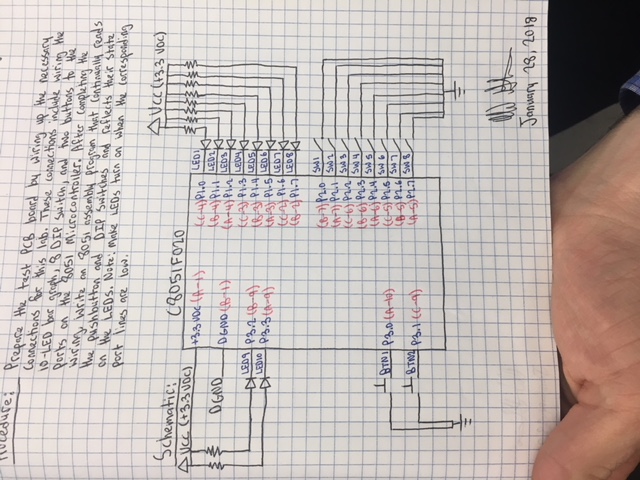 Procedure: Prepare the test PCB board by wiring up the necessary
connections for this lab. These connections include wiring the
10-LED bar graph, 8 DIP switch, and two buttons to the
ports on the 8051 Microcontroller. After completing the
wiring write an 8051 assembly program that continually reads
the pushbutton and DIP switches and reflects their state
on the LEDs. Note: make LEDs turn on when the corresponding
port lines are low.
Schematic:
C8051F020
VCC (+3.3 VDC)
VCC (+3.3 VDC)
+3.3VDC (A-1)
DGND
DGND (B-1)
LED9 P3.2 (B-9)
LED10 P3.3 (A-9)
BTN1 P3.0 (A-10)
BTN2 P3.1 (C-9)
(C-4) P1.0 LED1
(B-4) P1.1 LED2
(A-4) P1.2 LED3
(C-3) P1.3 LED4
(B-3) P1.4 LED5
(A-3) P1.5 LED6
(C-2) P1.6 LED7
(B-2) P1.7 LED8
(B-7) P2.0 SW1
(A-7) P2.1 SW2
(C-6) P2.2 SW3
(B-6) P2.3 SW4
(A-6) P2.4 SW5
(C-5) P2.5 SW6
(B-5) P2.6 SW7
(A-5) P2.7 SW8
January 28, 2018